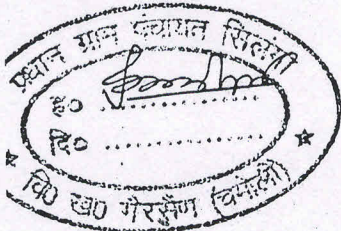 प्रधान ग्राम पंचायत सिलंगी
ह० ..................
दि० ..................
वि० ख० गैरसैंण (चमोली)